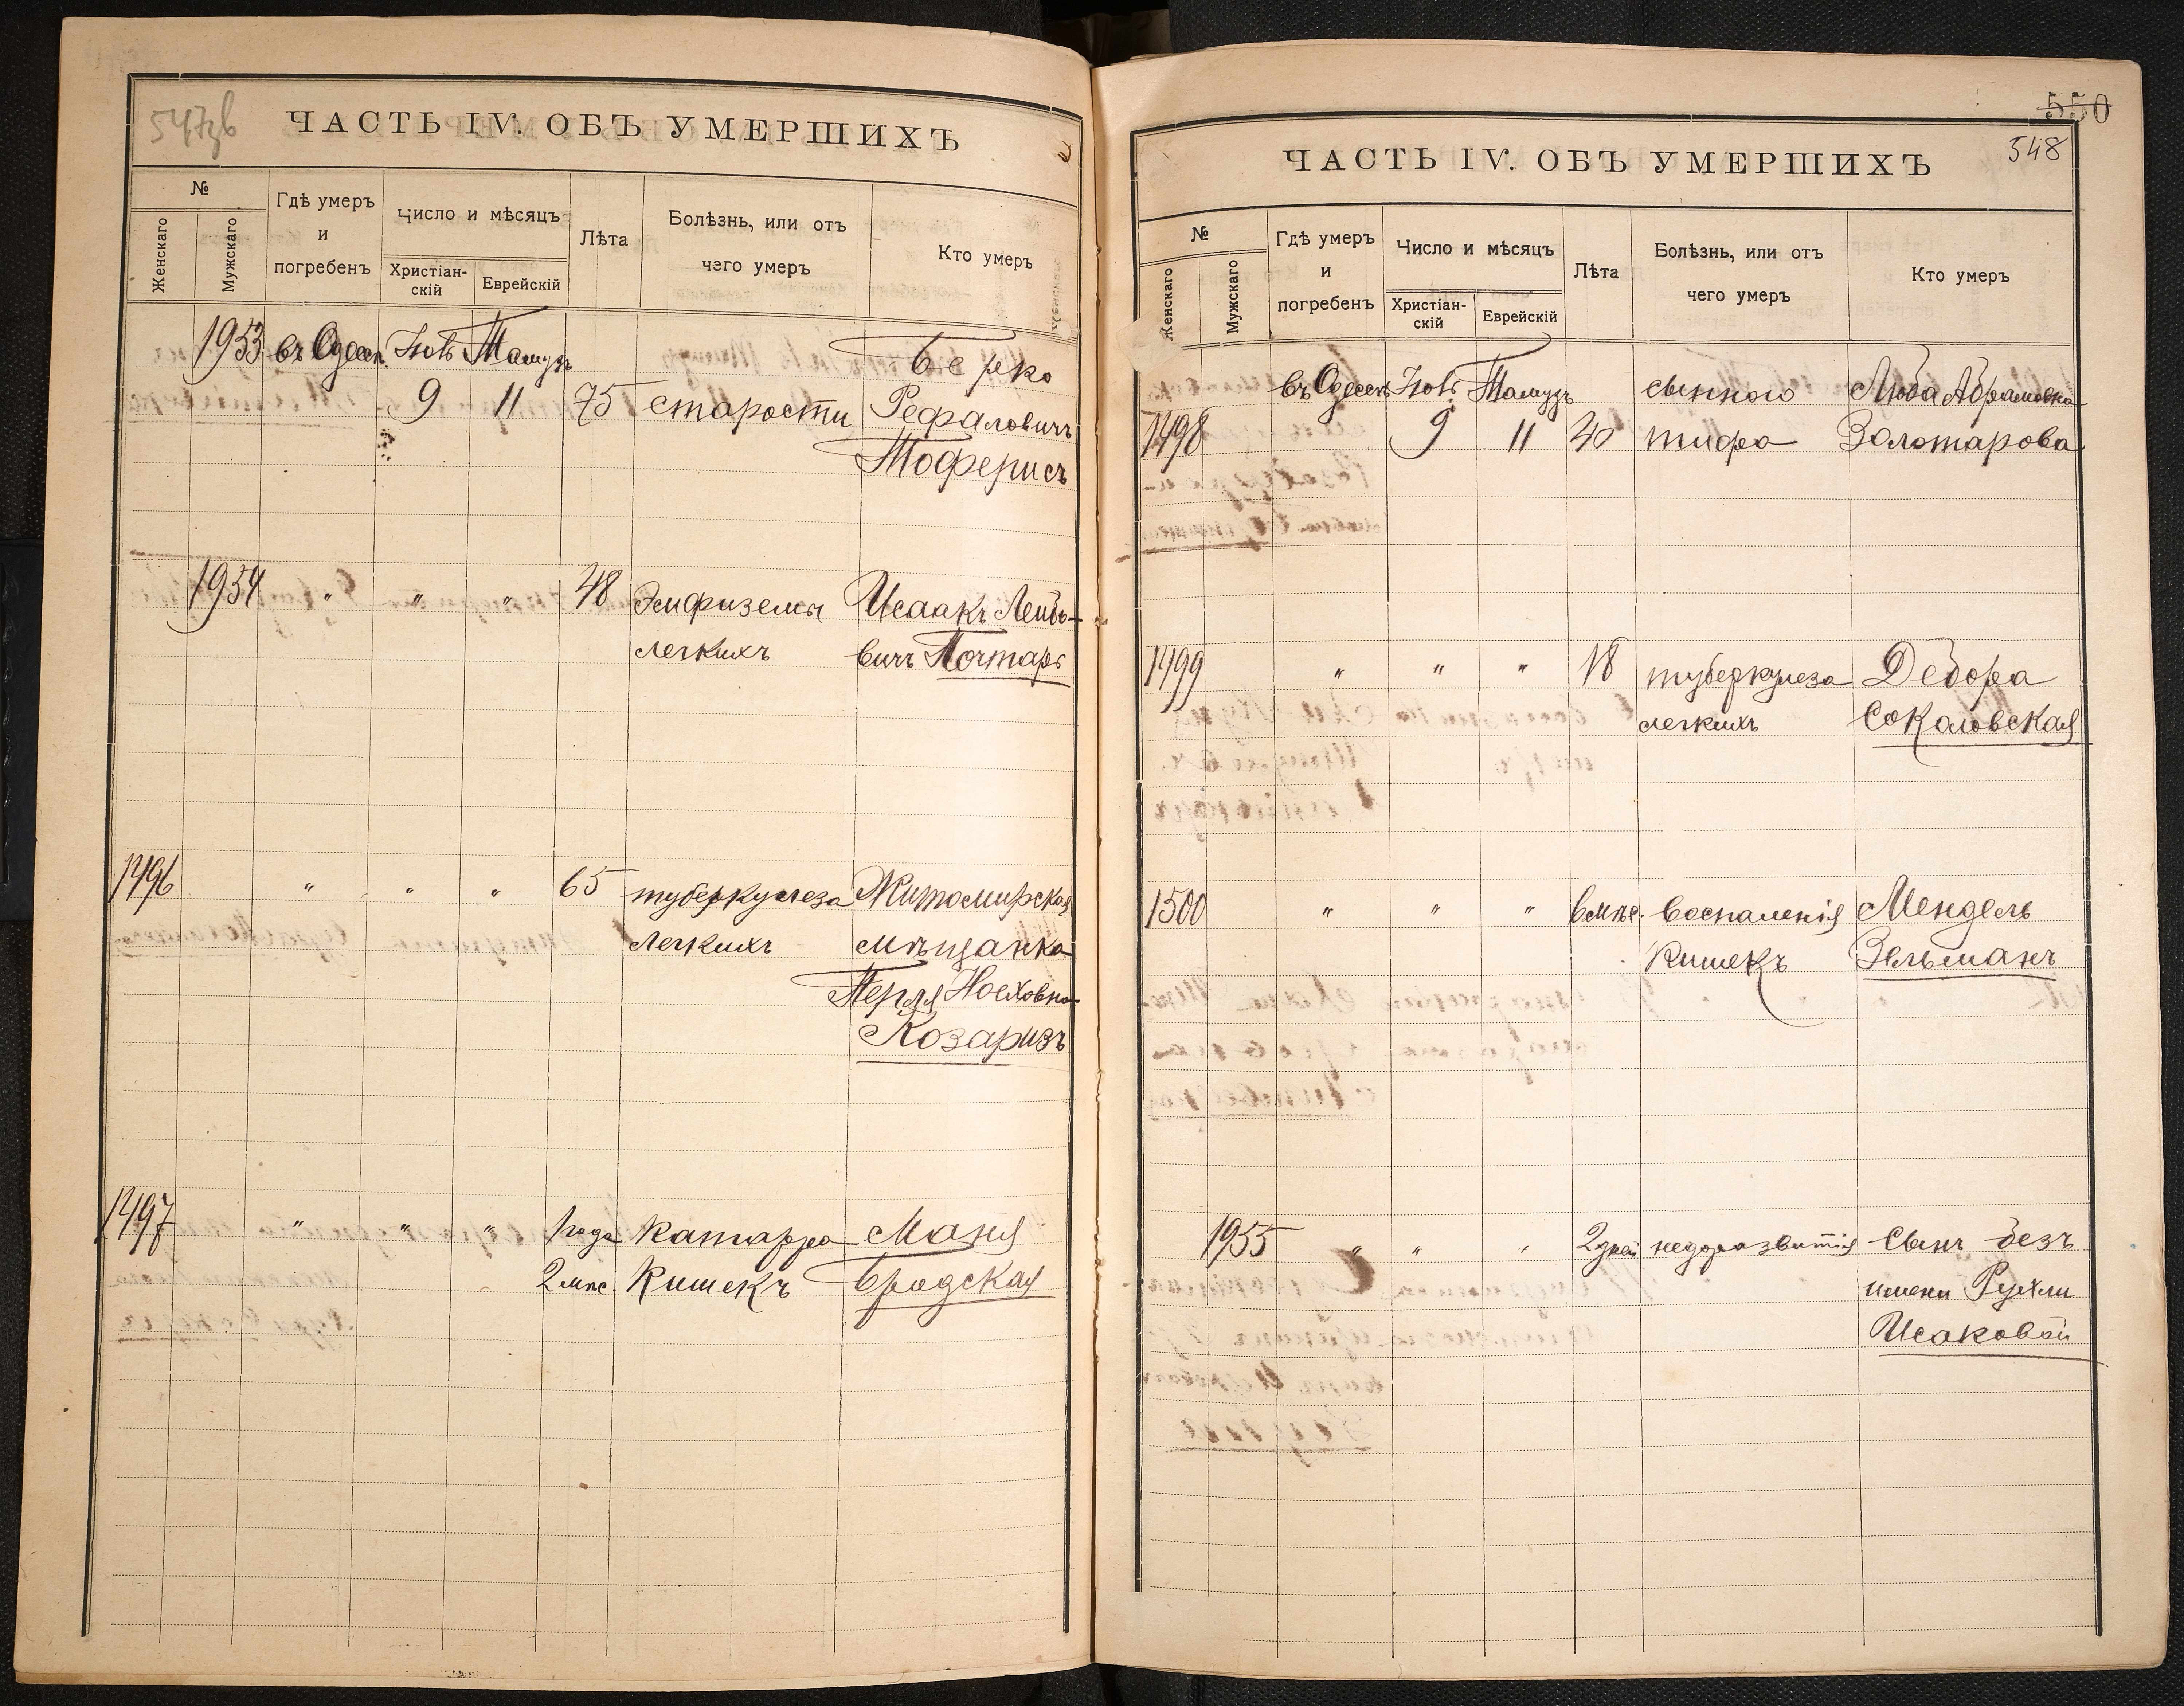 547зв
ЧАСТЬ IV. ОБЪ УМЕРШИХЪ
№
Женскаго
Мужскаго
Гдѣ умеръ
и
погребенъ
Число и мѣсяцъ
Христіан-
скій
Еврейскій
Лѣта
Болѣзнь, или отъ
чего умеръ
Кто умеръ
1953 въ Одессѣ Іюль Тамузъ Берко
9 11 75 старости Рефаловичъ
Тоферисъ
1954 " " " 48 Эмфиземы Исаакъ Лейбо-
легкихъ вичъ Почтарь
1496 " " " 65 туберкулеза Житомирская
легкихъ мѣщанка
Перля Ноеховна
Козаризъ
1497 " " " 1 года Катарра Маня
2 мѣс. Кишекъ Бродская
550
548
ЧАСТЬ IV. ОБЪ УМЕРШИХЪ
№
Женскаго
Мужскаго
Гдѣ умеръ
и
погребенъ
Число и мѣсяцъ
Христіан-
скій
Еврейскій
Лѣта
Болѣзнь, или отъ
чего умеръ
Кто умеръ
въ Одессѣ Іюль Тамузъ сыпного Люба Абрамовна
1498 9 11 40 тифа Золотарова
1499 " " " 18 туберкулеза Дебора
легкихъ Соколовская
1500 " " " 6 мѣс. Воспаленія Мендель
Кишекъ Зельманъ
1955 " " " 2 дней недоразвитія Сынъ безъ
имени Рухли
Исаковой